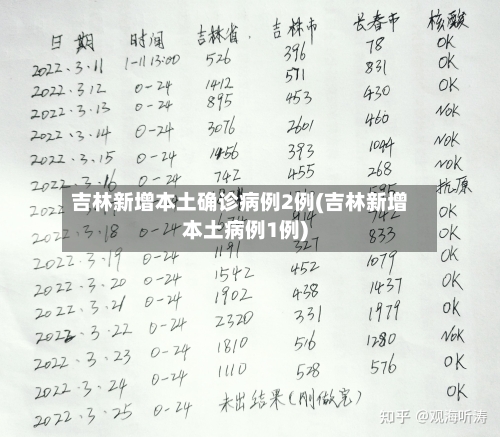 日期 时间 吉林省. 吉林市 长春市 核酸
2022.3.11 1-11 13:00 526 396 78 OK
2022.3.12 0-24 1412 571 831 OK
2022.3.13 0-24 895 453 430 OK
2022.3.14 0-24 3076 2601 460 NOK
2022.3.15 0-24 1456 393 1044 NOK
2022.3.16 0-24 742 455 268 NOK
595 抗原
吉林新增本土确诊病例2例(吉林新增
本土病例1例)
2022.3.18 0-24 742 OK
2022.3.19 0-24 1191 327 833 OK
2022.3.20 0-24 1542 452 1079 OK
2022.3.21 0-24 1902 438 1437 OK
2022.3.22 0-24 2320 331 1979 OK
2022.3.23 0-24 1810 516 1280 NOK
2022.3.24 0-24 1110 528 576 OK
2022.3.25 0-24 未出结果(刚做完) OK
知乎 @观海听涛